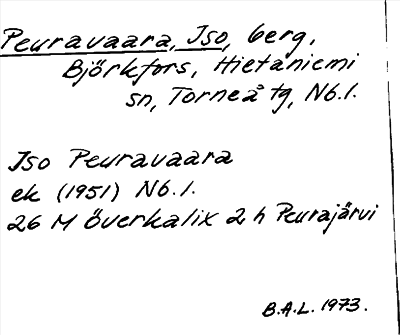 Peuravaara, Iso, berg,
Björkfors, Hietaniemi
sn, Torneå tg, Nb.l.
Iso Peuravaara
ek (1951) Nb.l.
26 M Överkalix 2 h Peurajärvi
B.A.L. 1973.